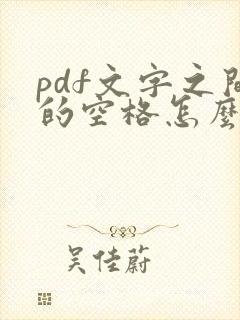 pdf文字之間
的空格怎麼
吴佳蔚